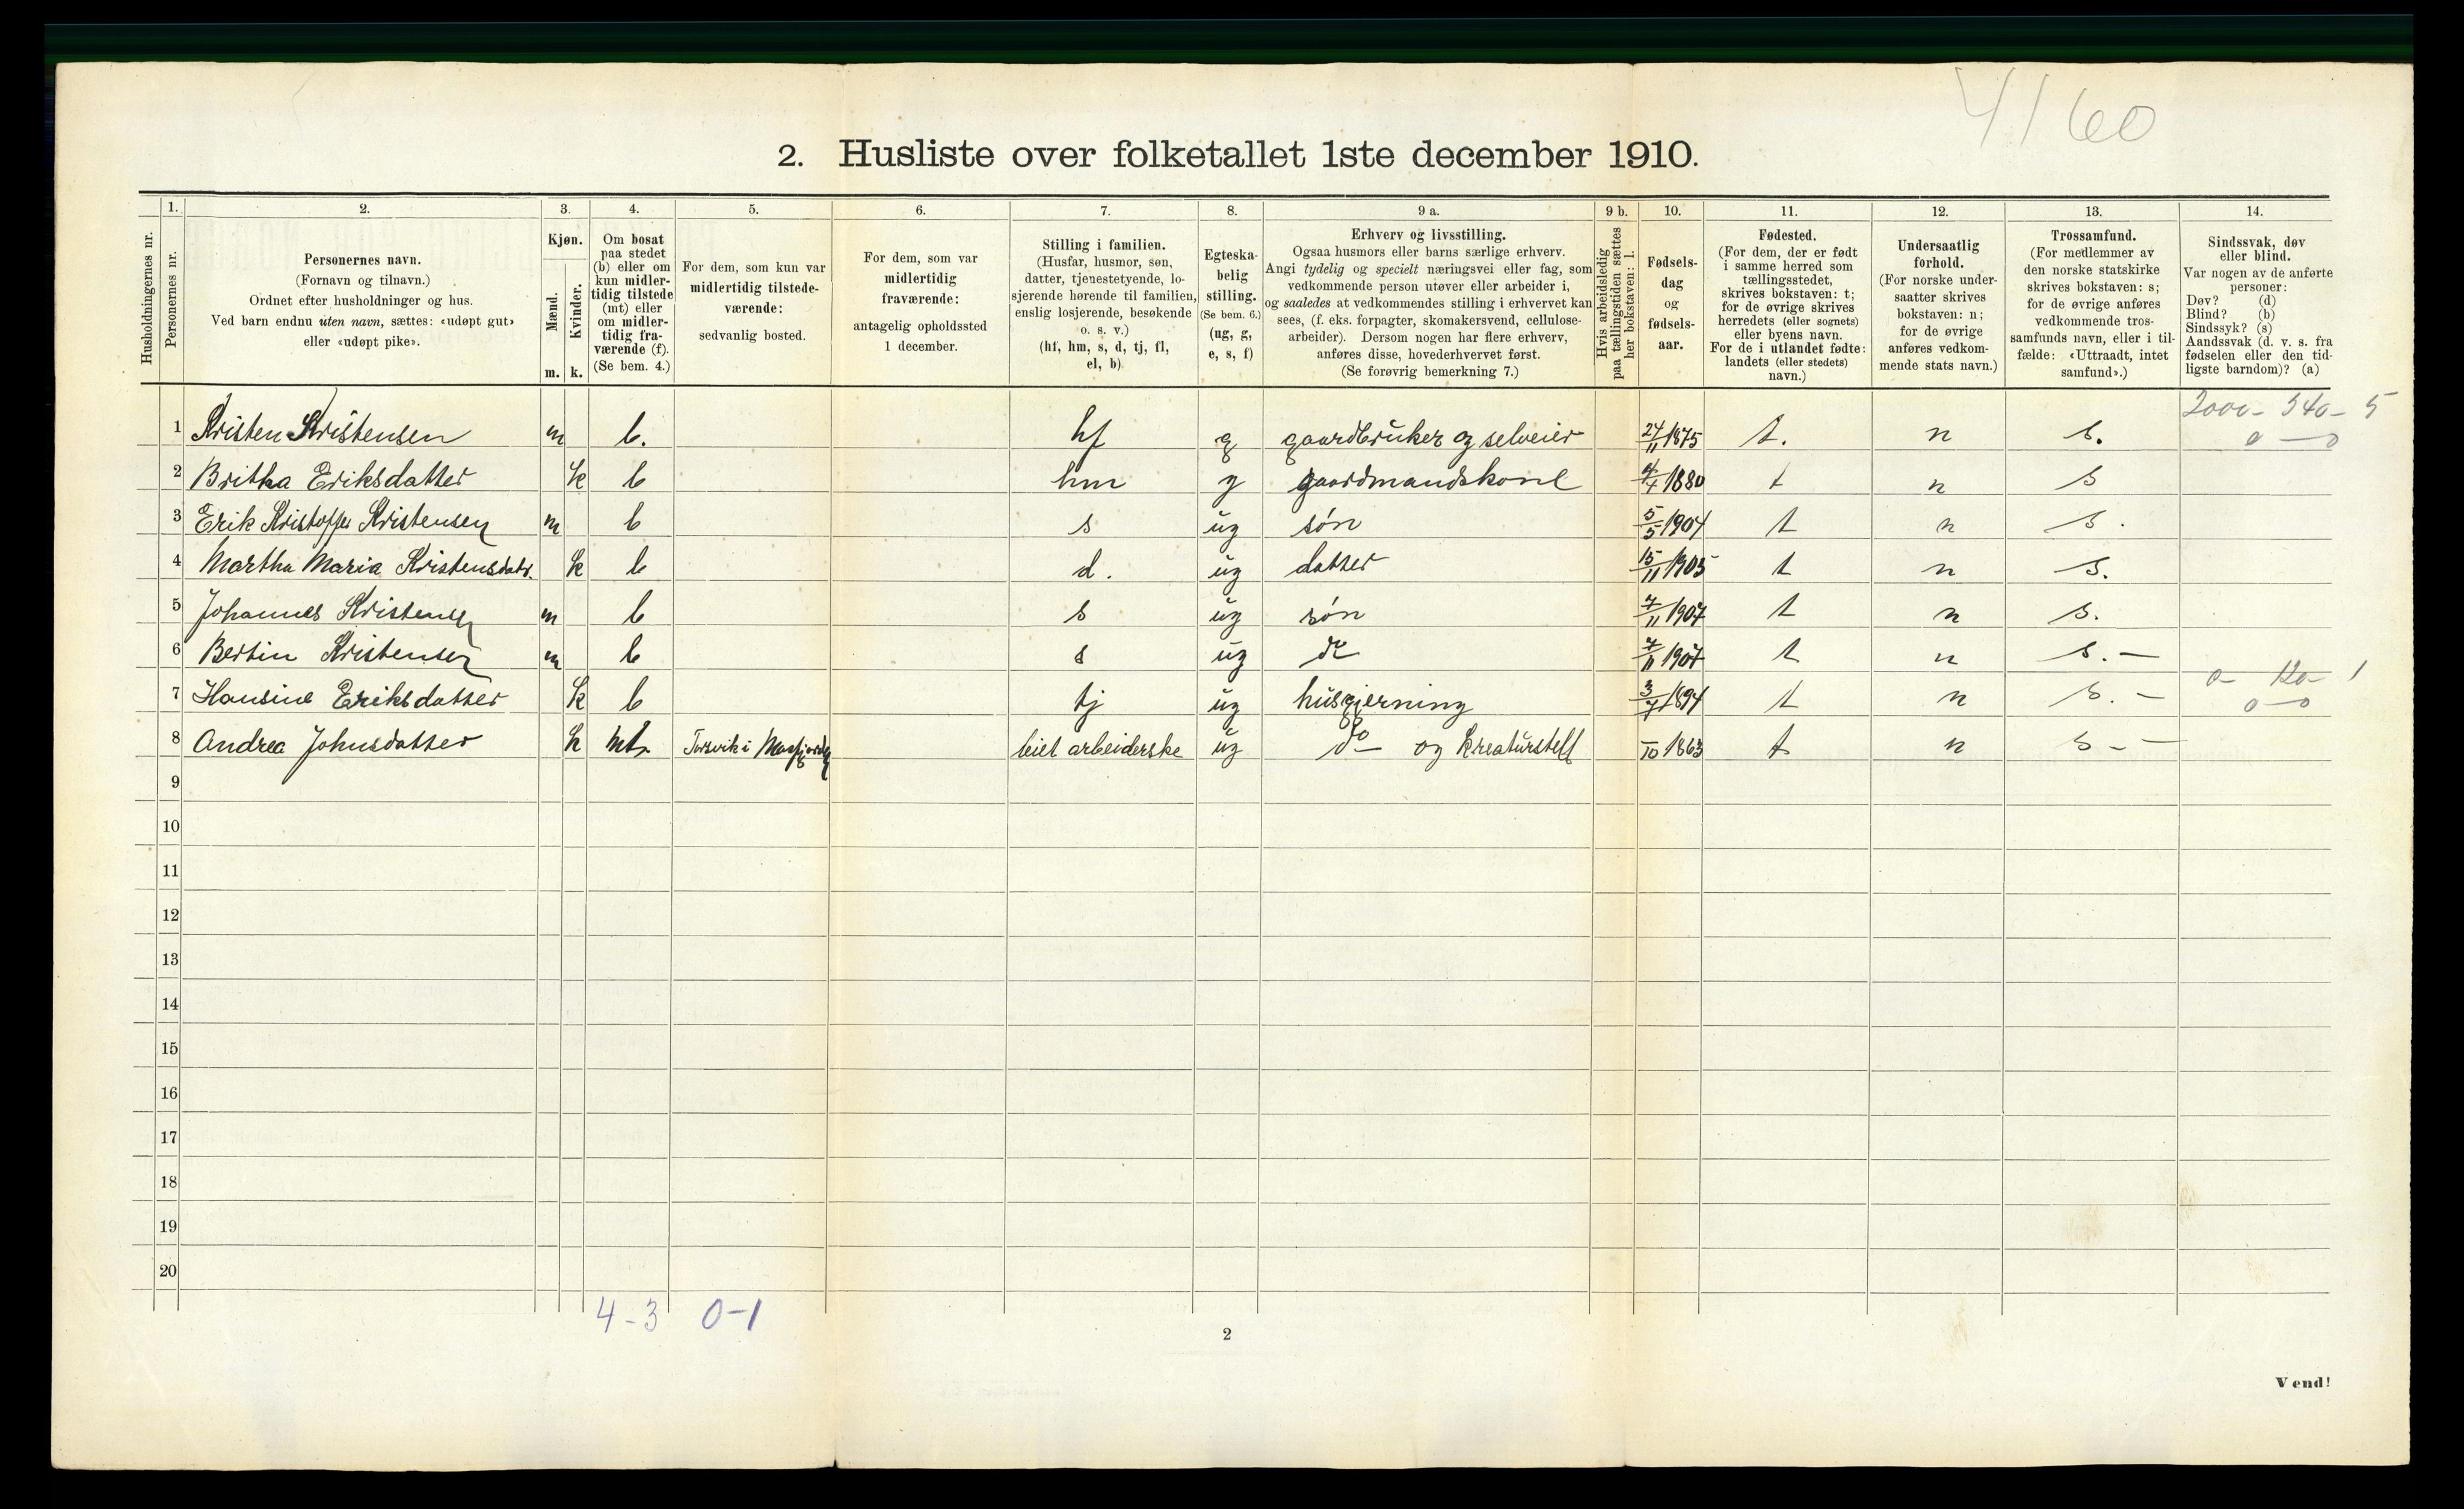 4160
2. Husliste over folketallet 1ste december 1910.
Husholdningernes nr.
1. Personernes nr.
2. Personernes navn.
(Fornavn og tilnavn.)
Ordnet efter husholdninger og hus.
Ved barn endnu uten navn, sættes: «udøpt gut»
eller «udøpt pike».
3. Kjøn.
Mænd. m.
Kvinder. k.
4. Om bosat
paa stedet
(b) eller om
kun midler-
tidig tilstede
(mt) eller
om midler-
tidig fra-
værende (f).
(Se bem. 4.)
5. For dem, som kun var
midlertidig tilstede-
værende:
sedvanlig bosted.
6. For dem, som var
midlertidig
fraværende:
antagelig opholdssted
1 december.
7. Stilling i familien.
(Husfar, husmor, søn,
datter, tjenestetyende, lo-
sjerende hørende til familien,
enslig losjerende, besøkende
o. s. v.)
(hf, hm, s, d, tj, fl,
el, b)
8. Egteska-
belig
stilling.
(Se bem. 6.)
(ug, g,
e, s, f)
9 a. Erhverv og livsstilling.
Ogsaa husmors eller barns særlige erhverv.
Angi tydelig og specielt næringsvei eller fag, som
vedkommende person utøver eller arbeider i,
og saaledes at vedkommendes stilling i erhvervet kan
sees, (f. eks. forpagter, skomakersvend, cellulose-
arbeider). Dersom nogen har flere erhverv,
anføres disse, hovederhvervet først.
(Se forøvrig bemerkning 7.)
9 b. Hvis arbeidsledig
paa tællingstiden sættes
her bokstaven: l.
10. Fødsels-
dag
og
fødsels-
aar.
11. Fødested.
(For dem, der er født
i samme herred som
tællingsstedet,
skrives bokstaven: t;
for de øvrige skrives
herredets (eller sognets)
eller byens navn.
For de i utlandet fødte:
landets (eller stedets)
navn.)
12. Undersaatlig
forhold.
(For norske under-
saatter skrives
bokstaven: n;
for de øvrige
anføres vedkom-
mende stats navn.)
13. Trossamfund.
(For medlemmer av
den norske statskirke
skrives bokstaven: s;
for de øvrige anføres
vedkommende tros-
samfunds navn, eller i til-
fælde: «Uttraadt, intet
samfund».)
14. Sindssvak, døv
eller blind.
Var nogen av de anførte
personer:
Døv? (d)
Blind? (b)
Sindssyk? (s)
Aandssvak (d. v. s. fra
fødselen eller den tid-
ligste barndom)? (a)
2000 - 340 - 5
1 Kristen Kristensen m b. hf g gaardbruker og selveier 24/11 1875 t. n s. 0 — 0
2 Britha Eriksdatter k b hm g gaardmandskone 4/4 1880 t n s
3 Erik Kristoffer Kristensen m b s ug søn 5/5 1904 t n s.
4 Martha Maria Kristensdatr. k b d. ug datter 15/11 1905 t n s.
5 Johannes Kristensen m b s ug søn 7/11 1907 t n s.
6 Bertin Kristensen m b s ug do 7/11 1907 t n s. —
0 - 120 - 1
7 Hansine Eriksdatter k b tj ug husgjerning 3/7 1894 t n s. — 0 — 0
8 Andrea Johnsdatter k mt. Torsvik i Masfjorden leiet arbeiderske ug do og kreaturstell /10 1863 t n s - —
9
10
11
12
13
14
15
16
17
18
19
20
4 - 3 0 - 1
2
Vend!